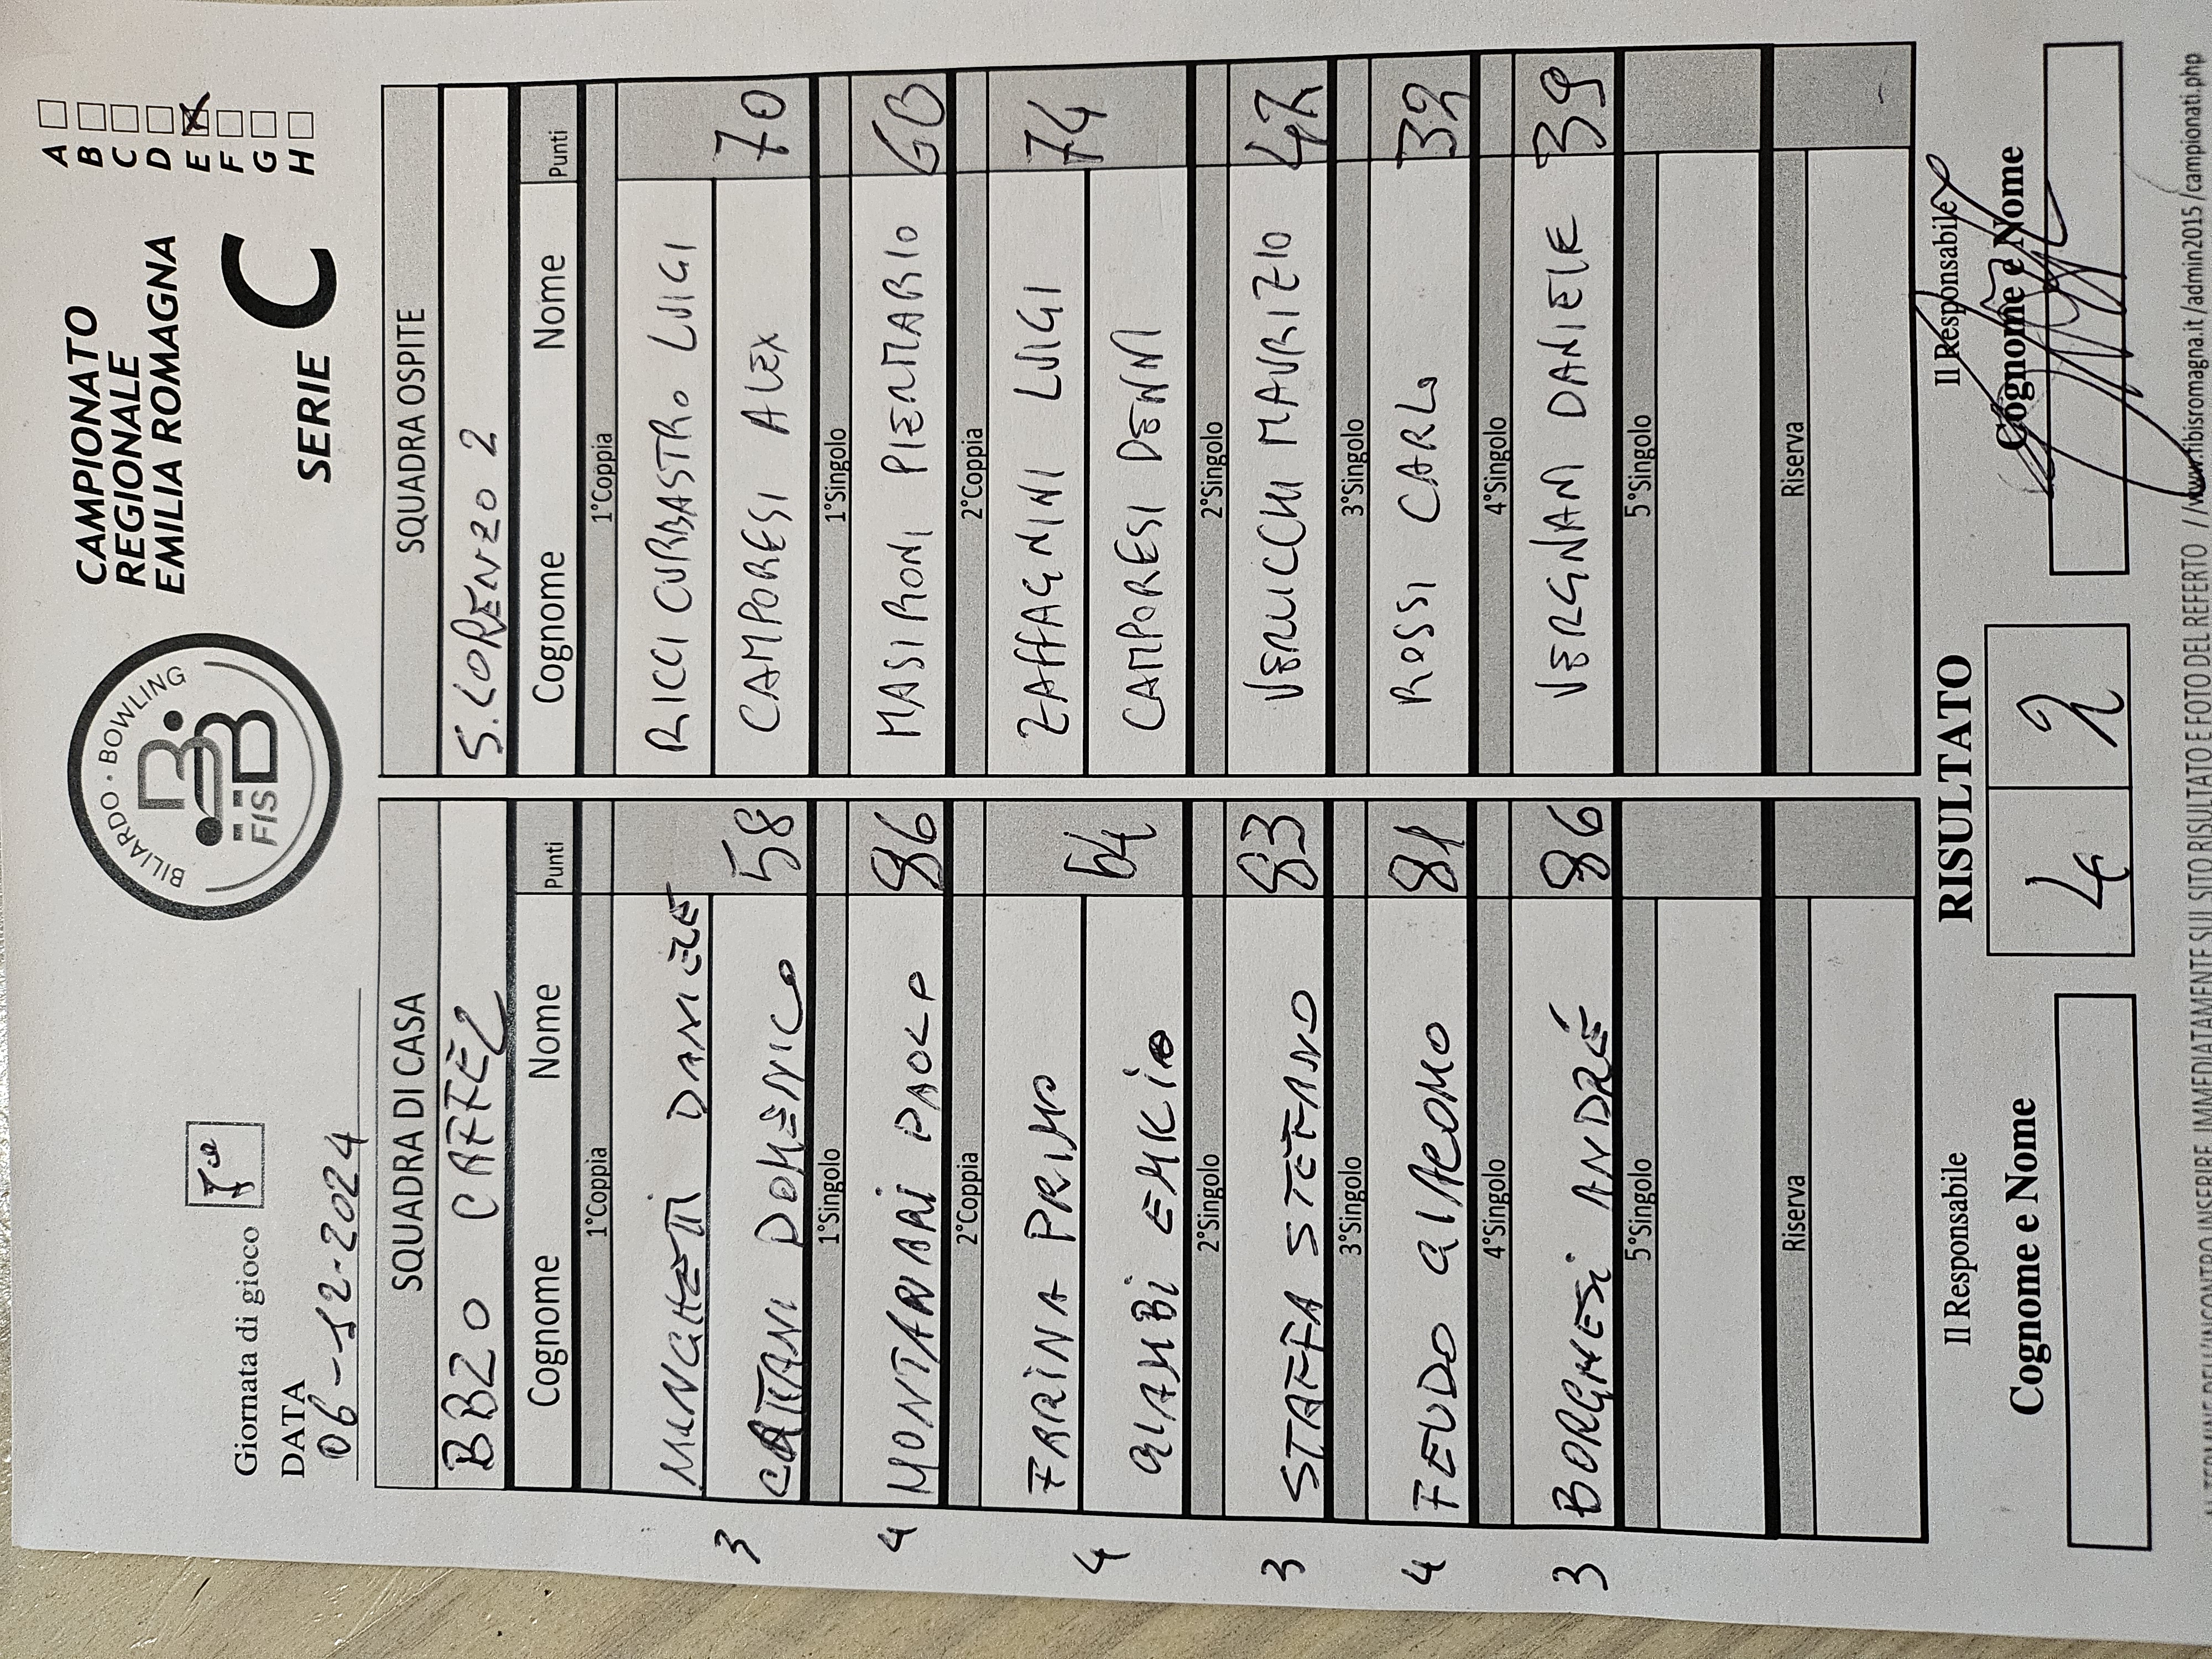 BILIARDO · BOWLING
FISBB
CAMPIONATO
REGIONALE
EMILIA ROMAGNA
SERIE C
A
B
C
D
E X
F
G
H
Giornata di gioco
DATA
06-12-2024
SQUADRA DI CASA SQUADRA OSPITE
BBZO CAFFÈ2 S. LORENZO 2
Cognome Nome Punti Cognome Nome Punti
1°Coppia 1°Coppia
MINGHETTI DANIELE RICCI CURBASTRO LUIGI
3 CATTANI DOMENICO 58 CAMPORESI ALEX 70
1°Singolo 1°Singolo
4 MONTANARI PAOLO 86 MASIRONI PIERMARIO 60
2°Coppia 2°Coppia
FARRINA PRIMO ZAFFAGNINI LUIGI 74
4 GIAMBI EMILIO 64 CAMPORESI DENNI
2°Singolo 2°Singolo
3 STAFFA STEFANO 83 VERLICCHI MAURIZIO 47
3°Singolo 3°Singolo
4 FEUDO GIACOMO 81 ROSSI CARLO 32
4°Singolo 4°Singolo
3 BORGHESI ANDRÉ 86 VERGNANI DANIELE 39
5°Singolo 5°Singolo
Riserva Riserva
Il Responsabile RISULTATO Il Responsabile
Cognome e Nome 4 2 Cognome e Nome
INSERIRE IMMEDIATAMENTE SU SITO RISULTATO E FOTO DEL REFERTO //www.fibisromagna.it/admin2015/campionati.php